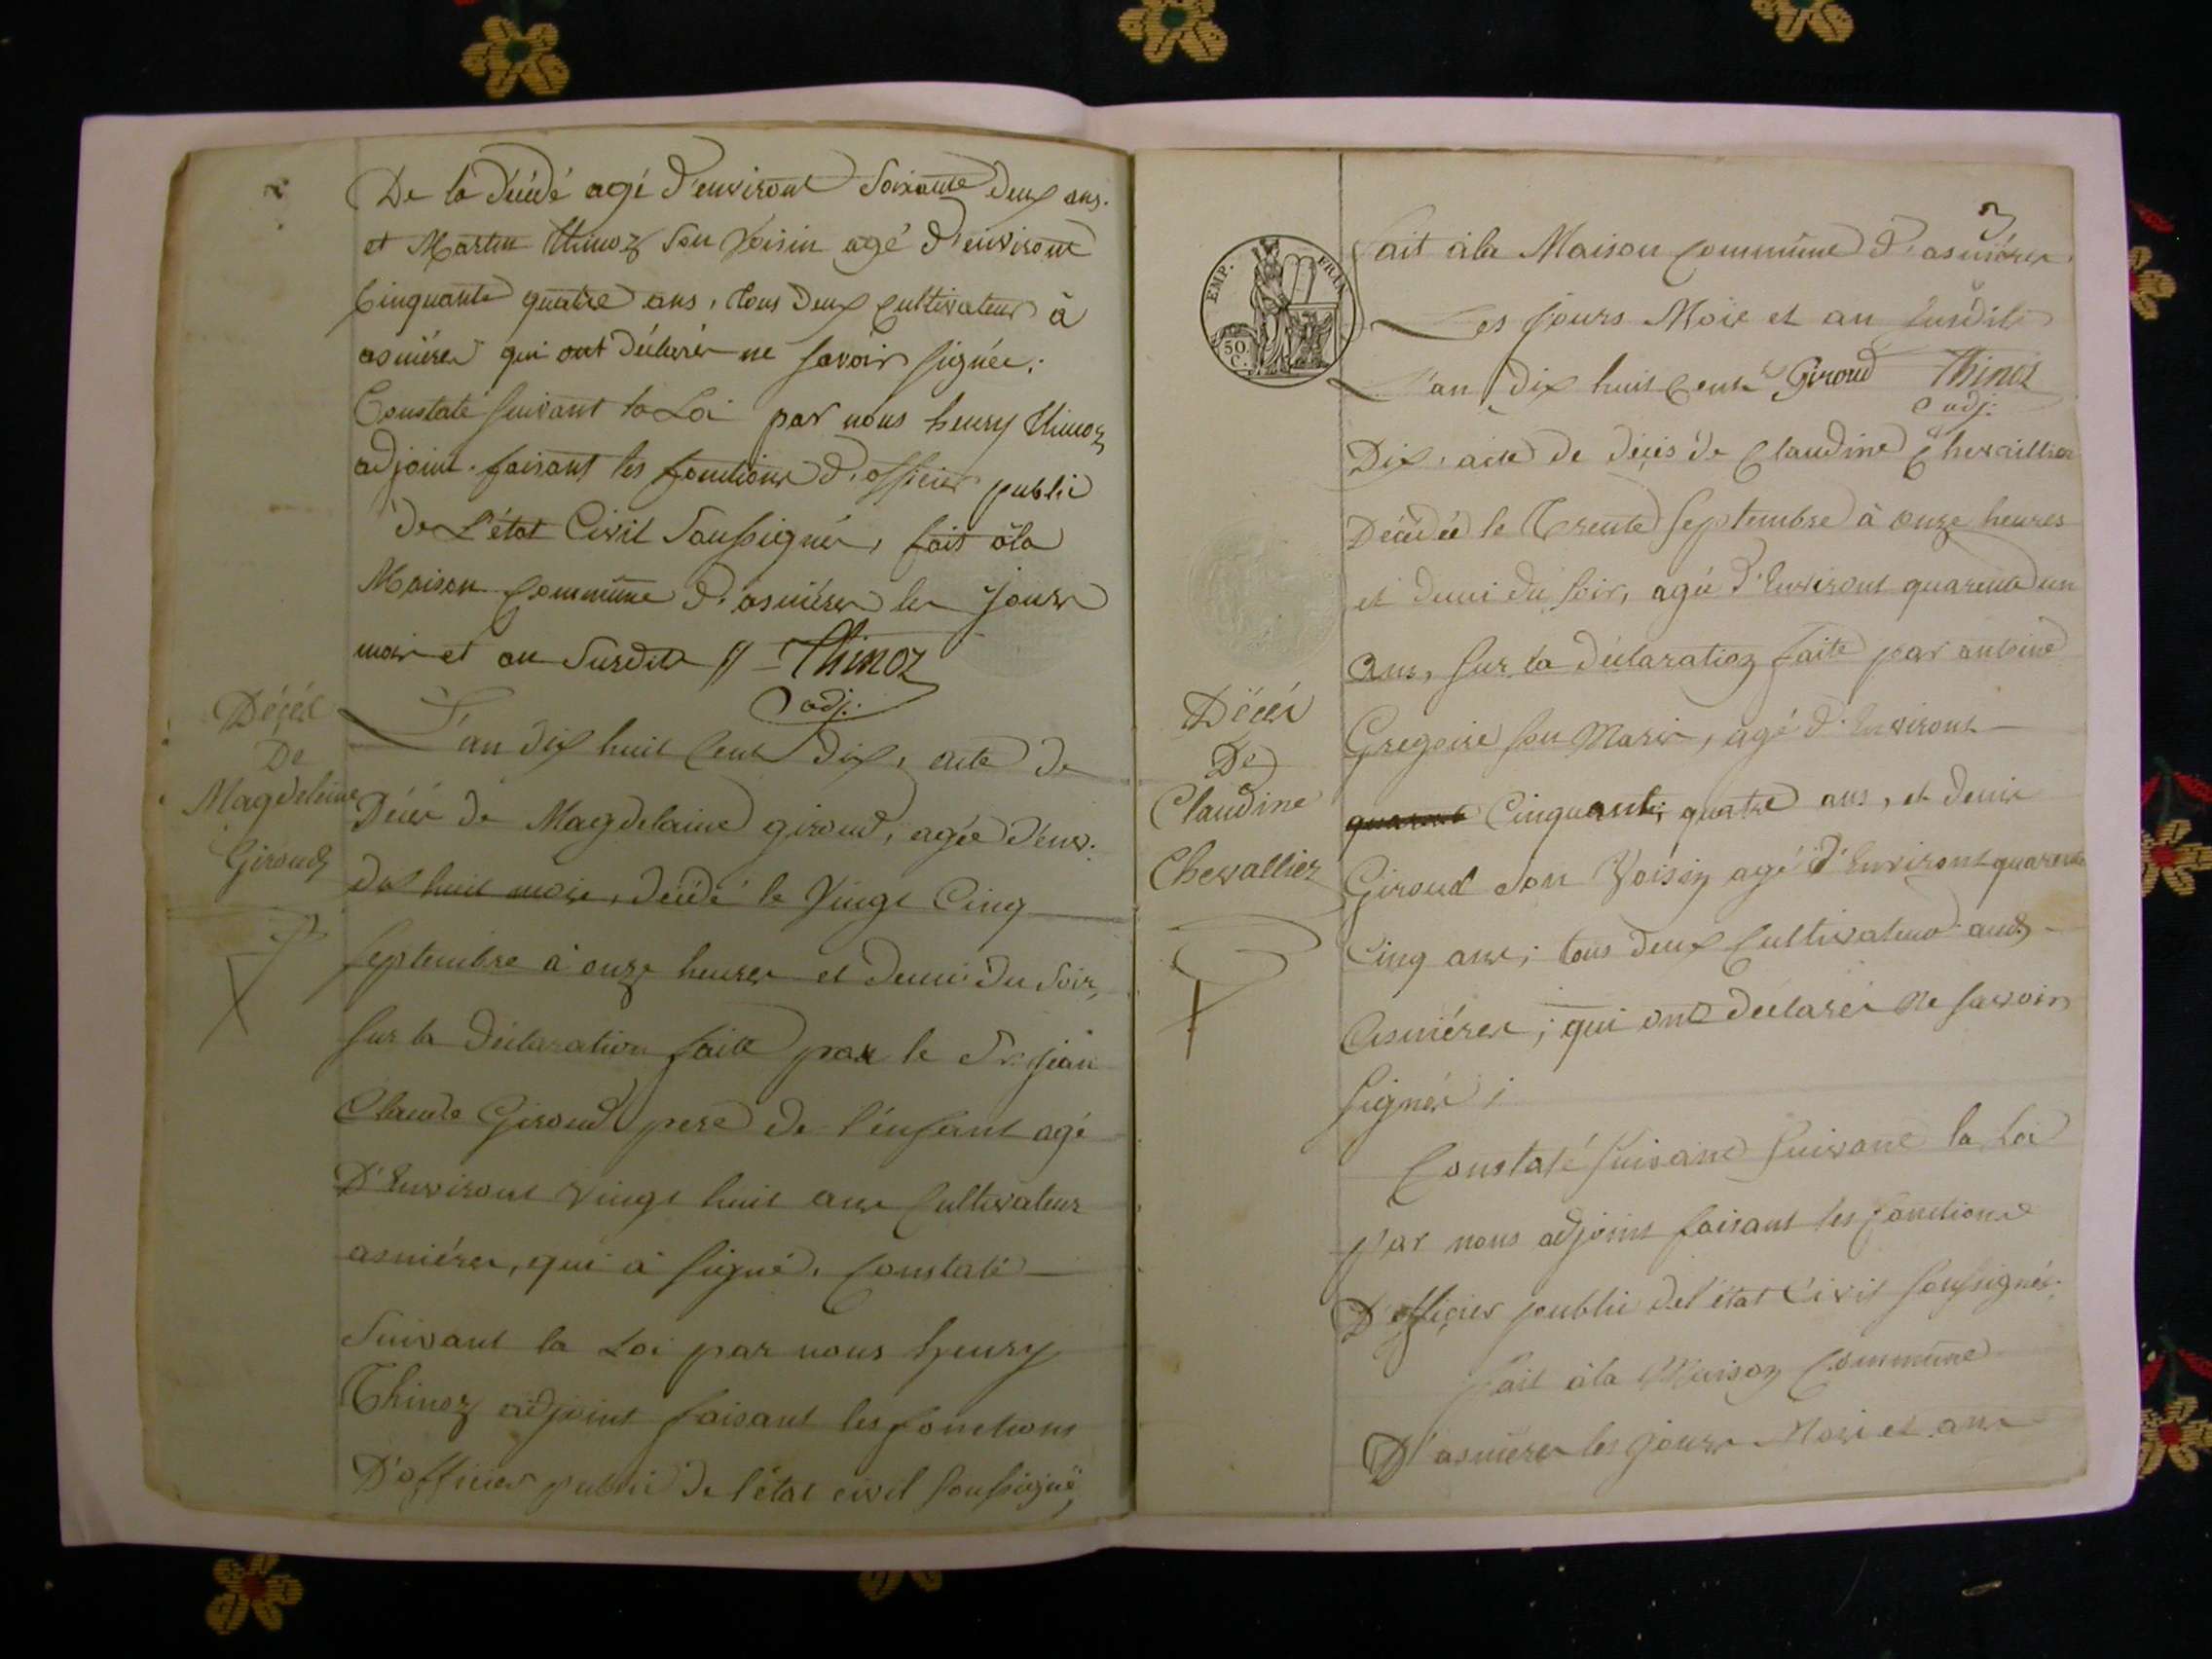 2
De la décédé agé d'environt Soixante Deux ans.
et Martin thinoz Son Voisin agé d'environt
Cinquante quatre ans, tous Deux Cultivateur à
asniéres qui ont déclarér ne Savoir Signée.
Constaté Suivant la Loi par nous henry thinoz
adjoint faisant les fonctions d'officier public
de L'état Civil Soussigné, fait à la
Maison Commune d'asniéres les jours
mois et an Susdits // Thinoz
adj:
Décés
De
Magdeleine
Giroud
L'an dix huit Cent dix, acte de
Décés de Magdelaine giroud, agée d'env.
dix huit mois, décédé le Vingt Cinq
Septembre à onze heures et demi du Soir,
Sur la déclaration faite par le Sr. jean
Claude Giroud pere de l'enfant agé
D'Environt vingt huit ans Cultivateur
asniéres, qui à Signé. Constaté
Suivant la Loi par nous henry
Thinoz adjoint faisant les fonctions
D'officier public de l'état civil Soussigné,
3
EMP. FRAN.
50. C.
fait à la Maison Commune d'asniéres
Les jours Mois et an Susdits
L'an dix huit Cent Giroud Thinoz
adj:
Dix, acte de décés de Claudine Chevaillier
Décédée le Trente Septembre à onze heures
et demi du Soir, agée d'Environt quarente un
ans, Sur la déclaration faite par antoine
Décés
De
Claudine
Chevallier
Gregoire Son Marie, agé d'Environt
quarante Cinquante quatre ans, et denis
Giroud Son Voisin agé d'Environt quarente
Cinq ans; tous deux Cultivateur audt
Asniéres; qui ont déclarér ne Savoir
Signér;
Constaté Suivant Suivant la Loi
par nous adjoint faisant les fonctions
D'officier public de l'état Civil Soussignés.
fait à la Maison Commune
D'asniéres les jours Mois et ans